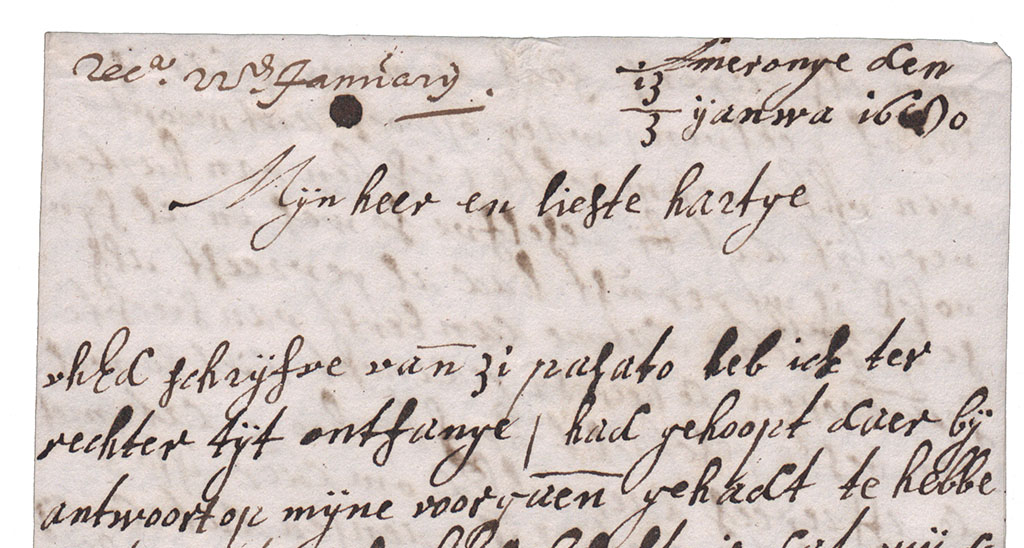 Rec.ᵈ 22th January.
Ameronge den
13/3 ijanwa 1680
Mijn heer en liefste hartge
uhEd schrijfve vann 31 pasato heb ick ter
rechter tijt ontfange / had gehoopt daer bij
antwoort op mijne voorgaenn gehadt te hebbe